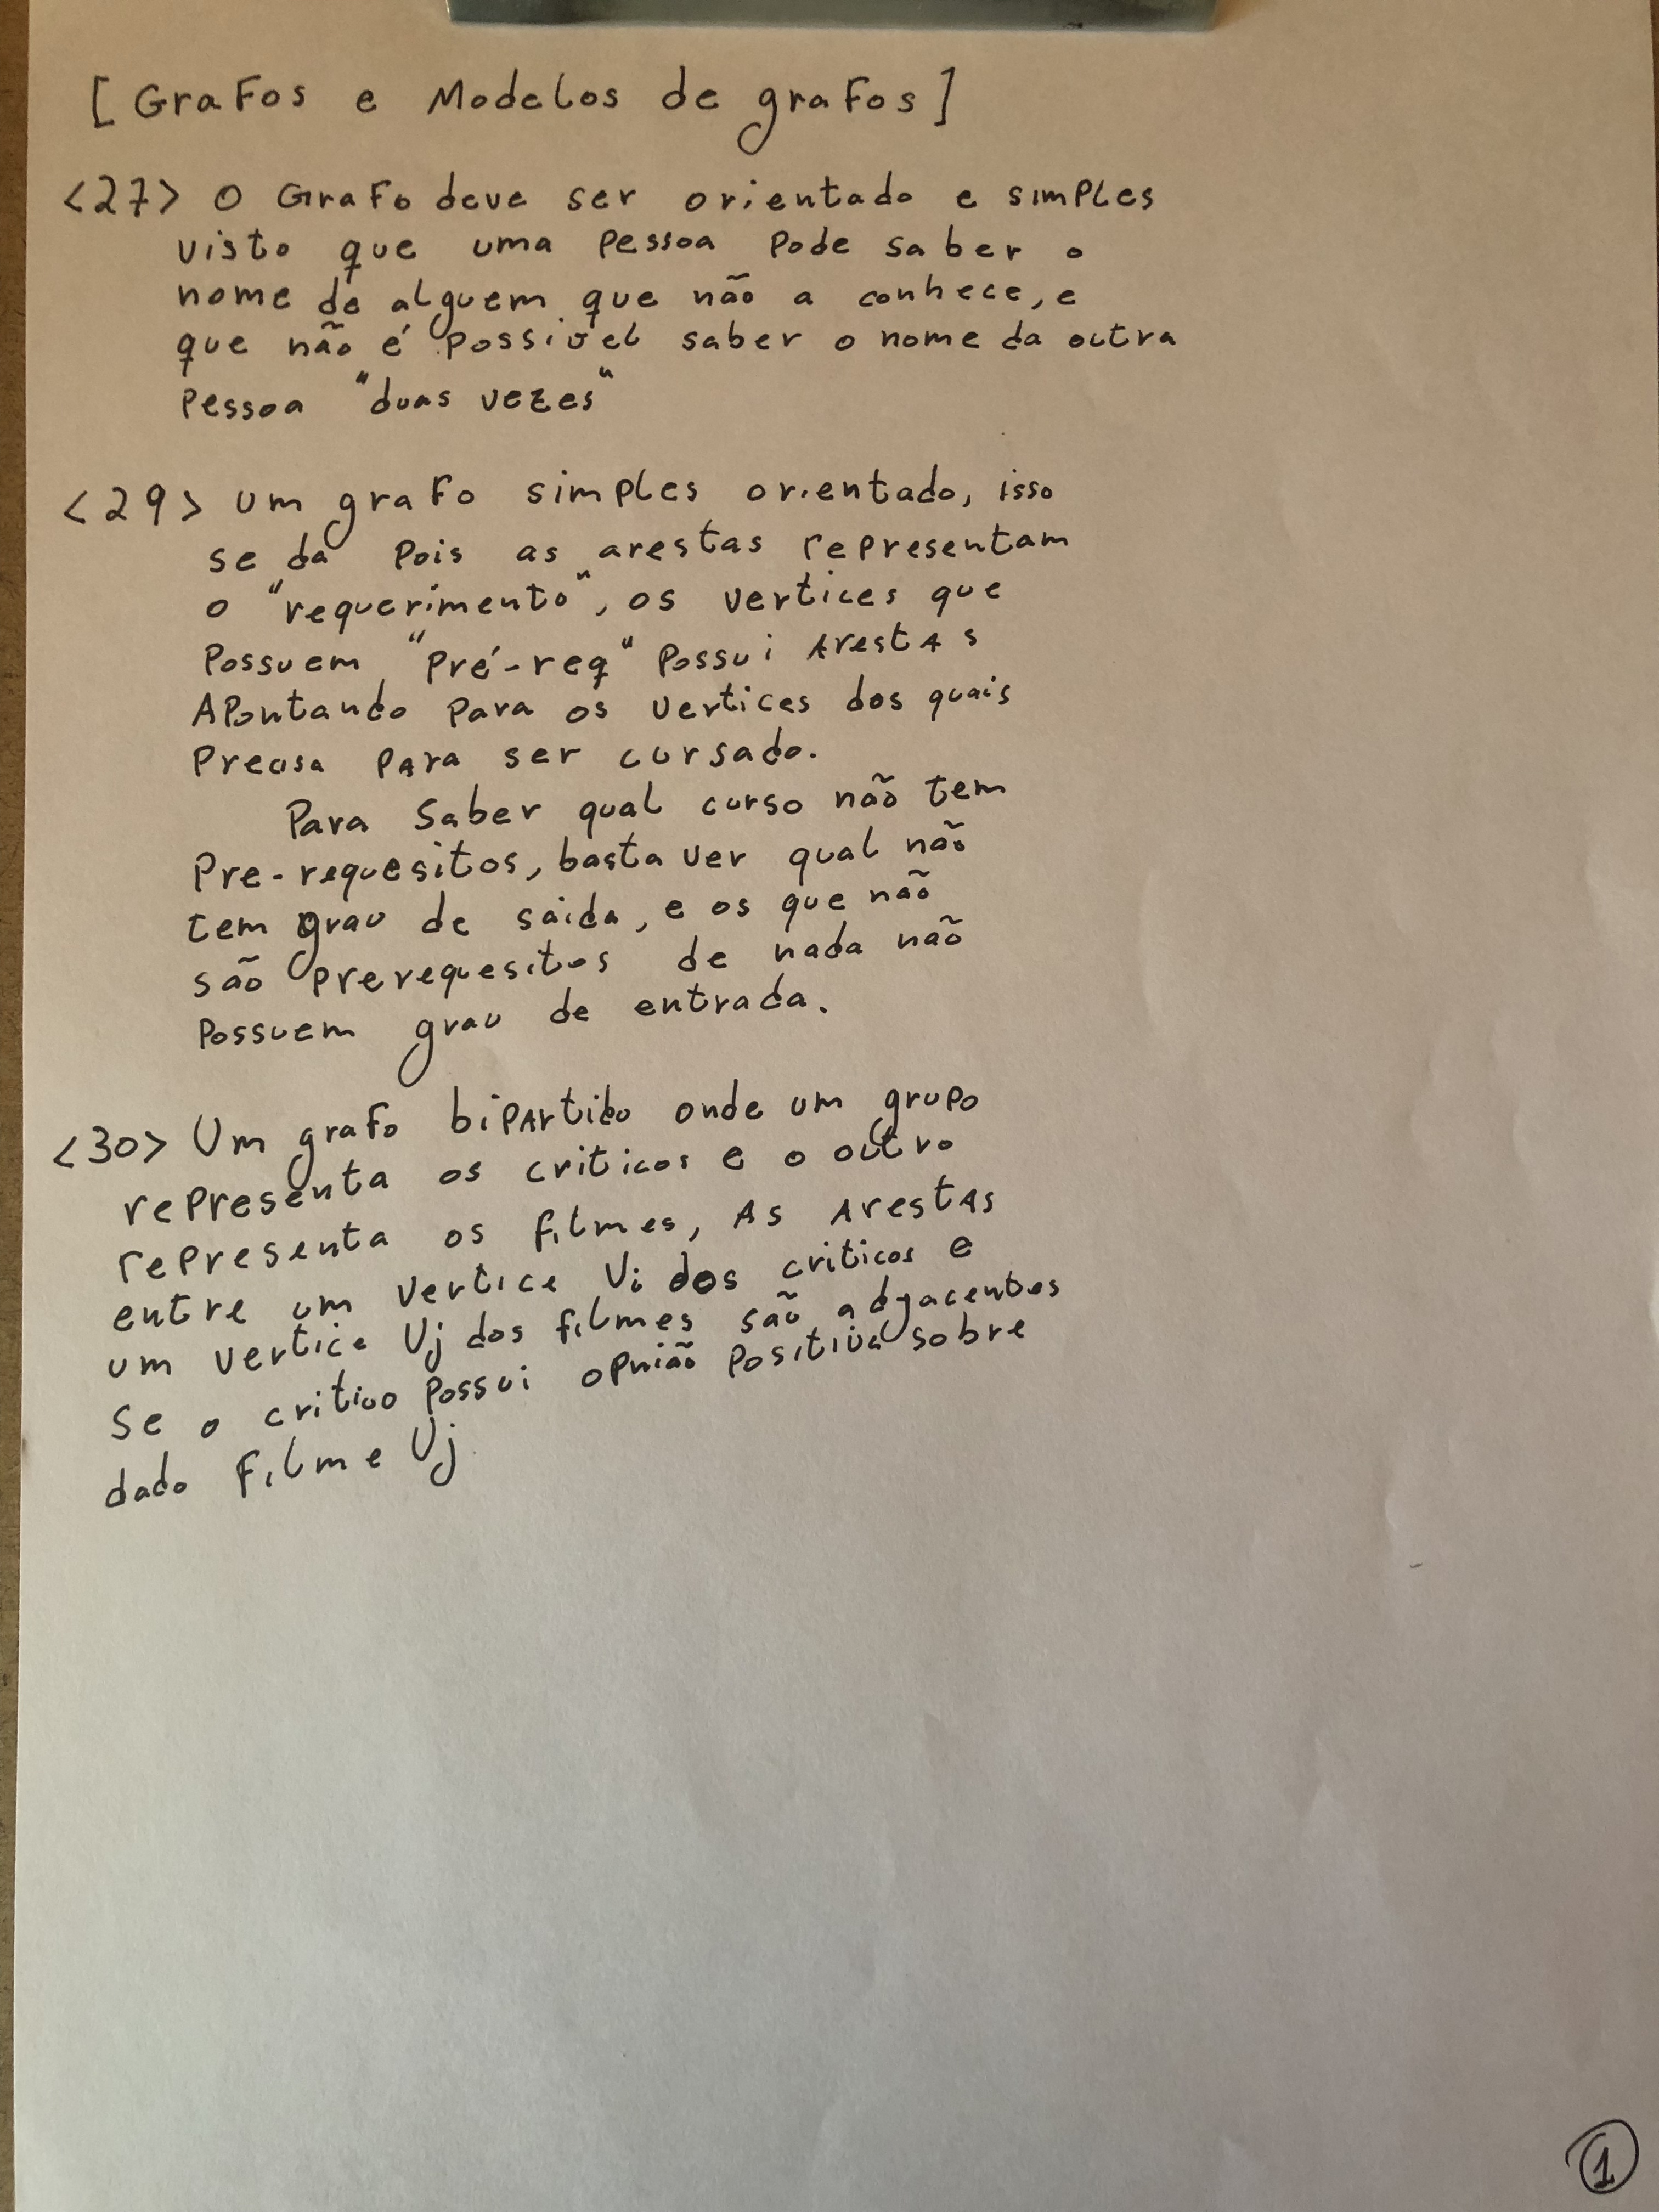 [Grafos e Modelos de grafos]
<27> O Grafo deve ser orientado e simples
visto que uma pessoa pode saber o
nome de alguem que não a conhece, e
que não é possivel saber o nome da outra
pessoa "duas vezes"
<29> um grafo simples orientado, isso
se da pois as arestas representam
o "requerimento", os vertices que
possuem "pré-req" possui Arestas
Apontando para os vertices dos quais
precisa para ser cursado.
Para saber qual curso não tem
Pre-requesitos, basta ver qual não
tem grau de saida, e os que não
são prerequesitos de nada não
possuem grau de entrada.
<30> Um grafo bipartido onde um grupo
representa os criticos e o outro
representa os filmes, As Arestas
entre um vertice Vi dos criticos e
um vertice Uj dos filmes são adjacentes
se o critico possui opnião positiva sobre
dado filme Uj
1